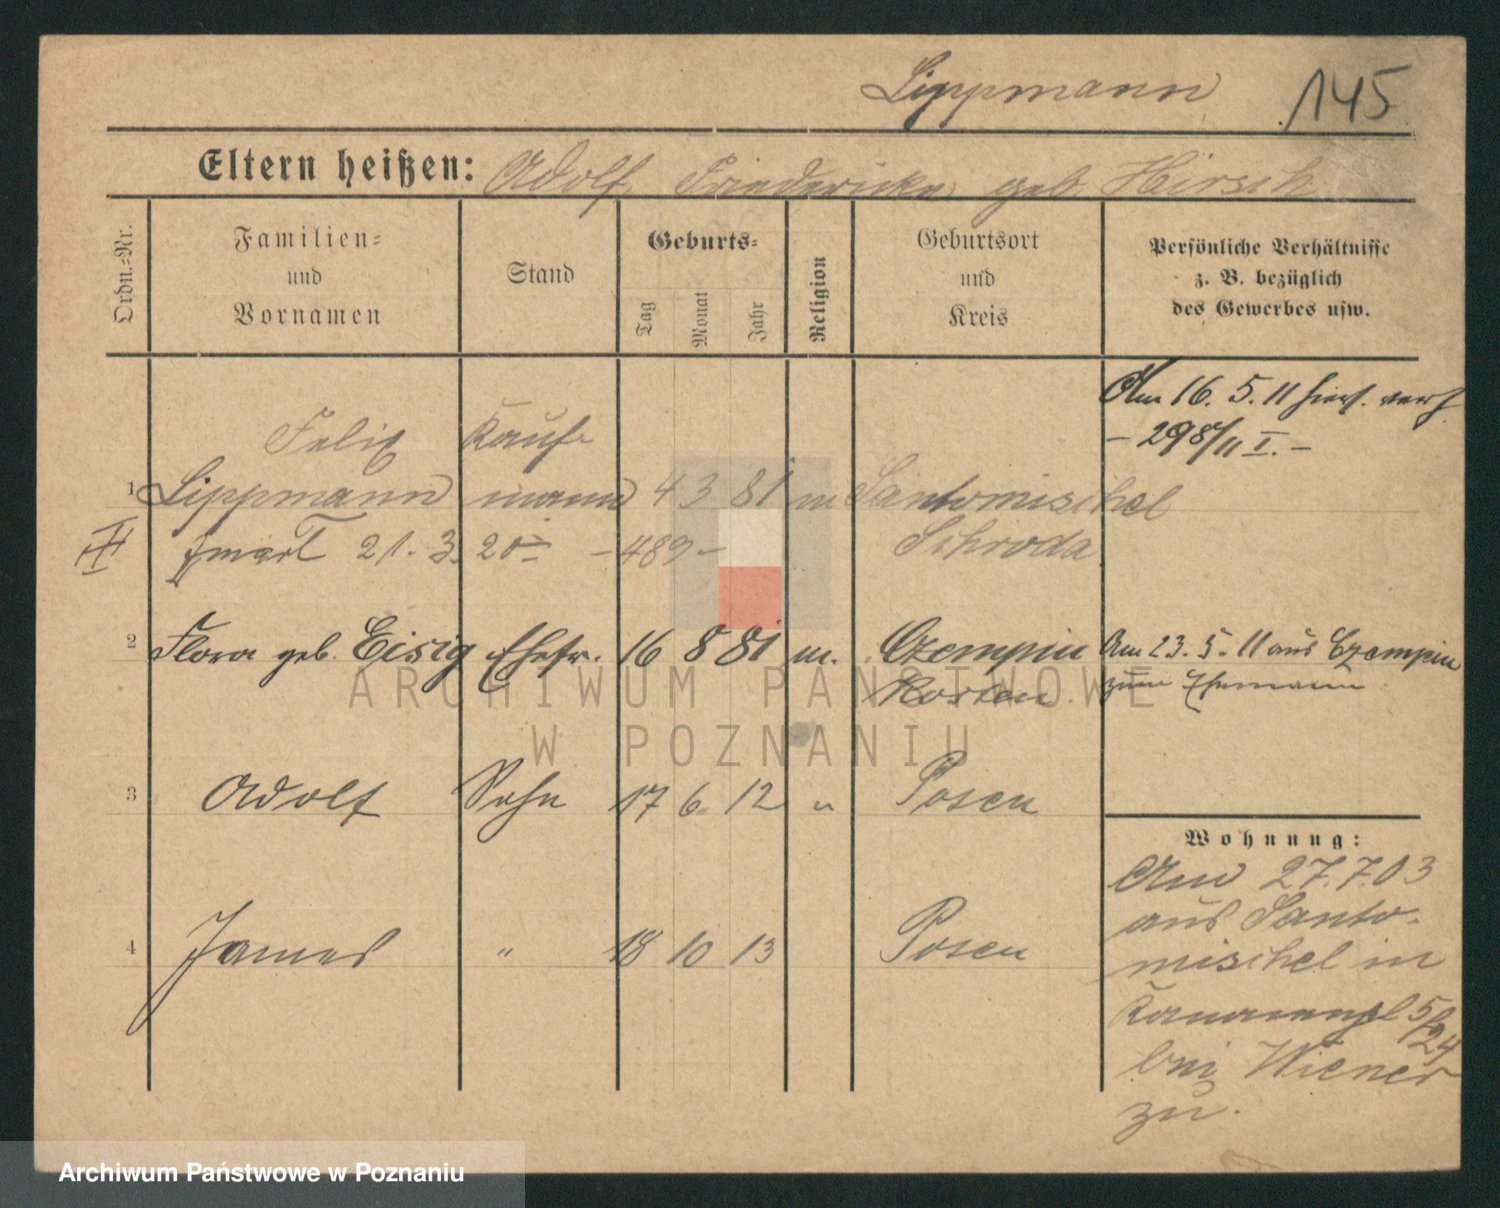 Lippmann 145
Eltern heißen: Adolf, Friedericke, geb. Hirsch
Ordn.-Nr.
Familien-
und
Vornamen
Stand
Geburts-
Tag
Monat
Jahr
Religion
Geburtsort
und
Kreis
Persönliche Verhältnisse
z. B. bezüglich
des Gewerbes usw.
Am 16. 5. 11 hier. verh.
- 298/11 I. -
Felix Kauf-
1 Lippmann mann 4 3 81 m Santomischel
21. 3. 20 - 489 - Schroda
2 Flora geb. Eisig Ehefr. 16 8 81 m. Czempin Am 23. 5. 11 aus Czempin
Kosten. zum Ehemann
3 Adolf Sohn 17 6 12 " Posen
Wohnung:
Am 27. 7. 03
aus Santo-
mischel in
5/24
bei Wiener
zu.
4 James " 18 10 13 Posen
ARCHIWUM PAŃSTWOWE
W POZNANIU
Archiwum Państwowe w Poznaniu